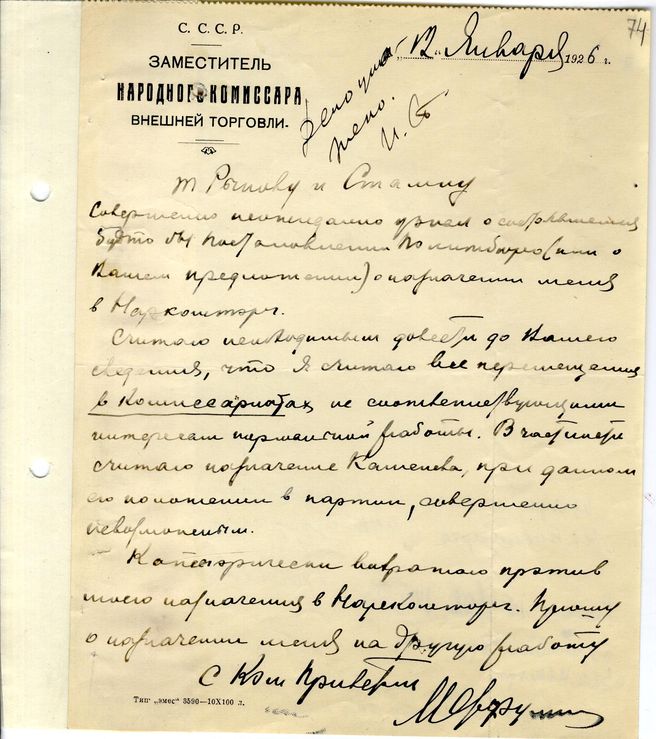 74
С. С. С. Р.
ЗАМЕСТИТЕЛЬ
НАРОДНОГО КОМИССАРА
ВНЕШНЕЙ ТОРГОВЛИ.
„12“ Января 1926 г.
И. Ст.
т Рыкову и Сталину
Совершенно неожиданно узнал о состоявшемся
будто бы постановлении Политбюро (или о
Вашем предложении) о назначении меня
в Наркомторг.
Считаю необходимым довести до Вашего
сведения, что я считаю все перемещения
в Комиссариатах не соответствующими
интересам нормальной работы. В частности
считаю назначение Каменева, при данном
его положении в партии, совершенно
невозможным.
Категорически возражаю против
моего назначения в Наркомторг. Прошу
о назначении меня на другую работу
С Ком Приветом
М Фрумкин
Тип. „эмес“ 3590—10X100 л.